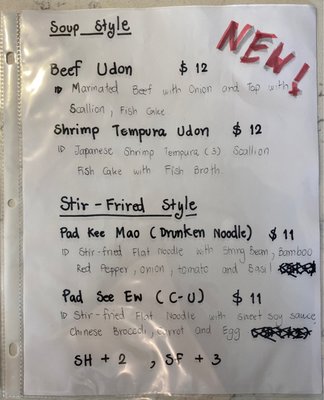 Soup Style
NEW!
Beef Udon $ 12
Marinated Beef with Onion and Top with
Scallion, Fish Cake
Shrimp Tempura Udon $ 12
Japanese Shrimp Tempura (3) Scallion
Fish Cake with Fish Broth.
Stir-Frired Style
Pad Kee Mao (Drunken Noodle) $ 11
Stir-fried Flat Noodle with String Bean, Bamboo
Red Pepper, onion, tomato and Basil
Pad See Ew (C-U) $ 11
Stir-fried Flat Noodle with sweet soy sauce,
Chinese Broccoli, Carrot and Egg
SH + 2 , SF + 3